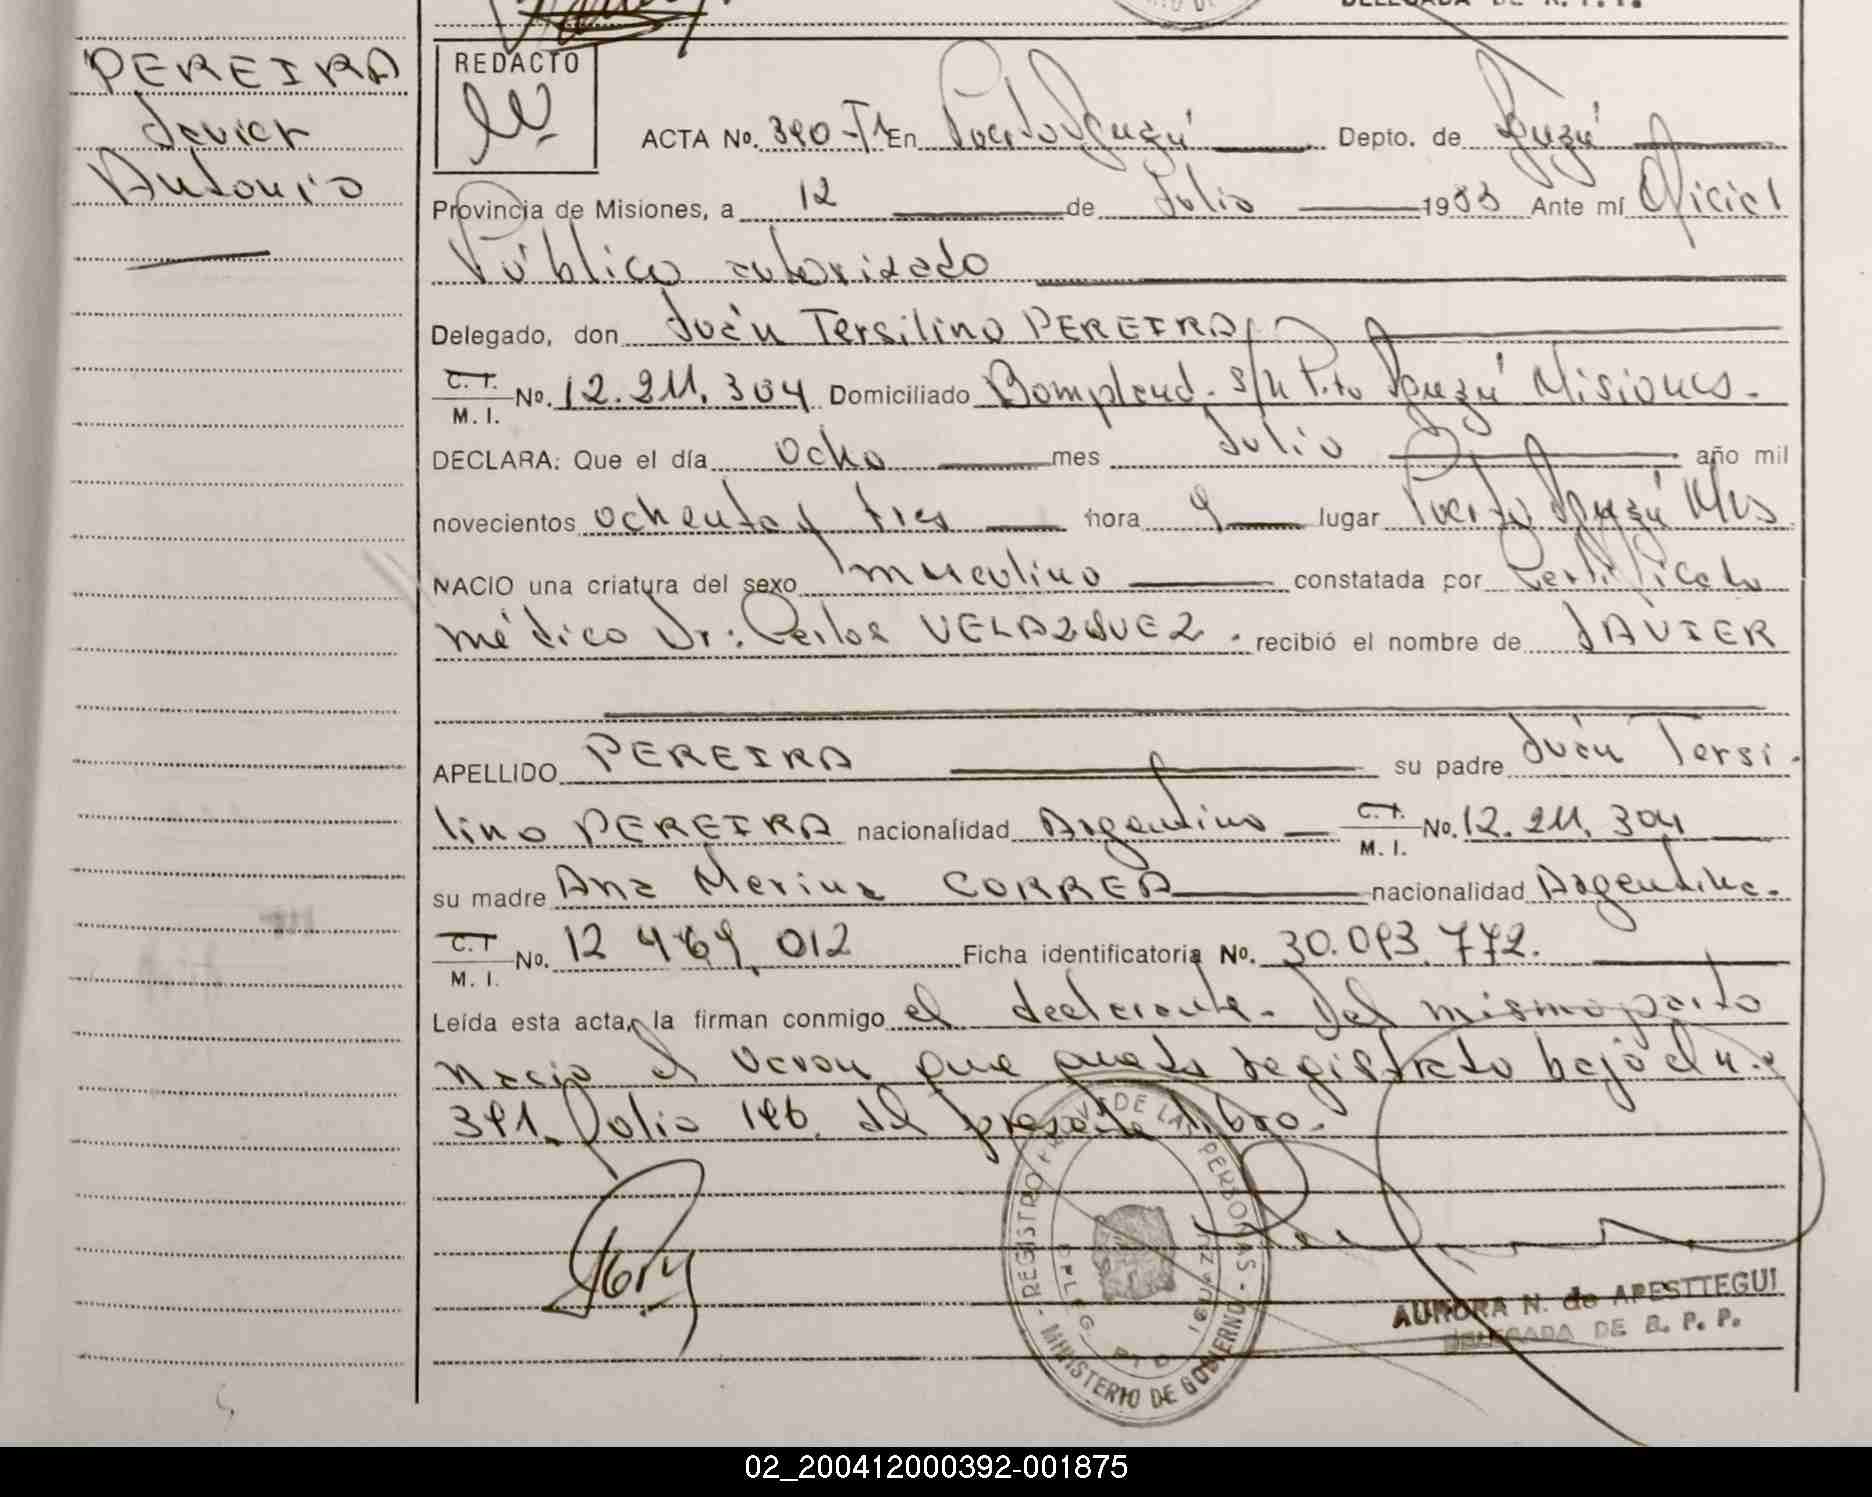 PEREIRA
Javier
Antonio
REDACTO
ACTA No. 390-T1 En Puerto Iguazú Depto. de Iguazú
Provincia de Misiones, a 12 de Julio 1983 Ante mí Oficial
Público autorizado
Delegado, don Juán Tersilino PEREIRA
C. I. M. I. No. 12.211.304 Domiciliado Bompland. s/n Pto Iguazú Misiones.
DECLARA: Que el día ocho mes Julio año mil
novecientos ochenta y tres hora 9 lugar Puerto Iguazú Mis
NACIO una criatura del sexo masculino constatada por Certificado
médico Dr: Carlos VELAZQUEZ. recibió el nombre de JAVIER
APELLIDO PEREIRA su padre Juán Tersi-
lino PEREIRA nacionalidad Argentino C. I. M. I. No. 12.211.304
su madre Ana Marina CORREA nacionalidad Argentina.
C. I M. I. No. 12 469.012 Ficha identificatoria No. 30.093.772.
Leída esta acta, la firman conmigo el declarante. Del mismo parto
nacio el varon que queda registrado bajo el n.º
391. Folio 196. del presente libro.
REGISTRO PROV. DE LAS PERSONAS - MINISTERIO DE GOBIERNO
DELEG. PTO IGUAZU
AURORA N. de APESTTEGUI
DELEGADA DE R. P. P.
02_200412000392-001875